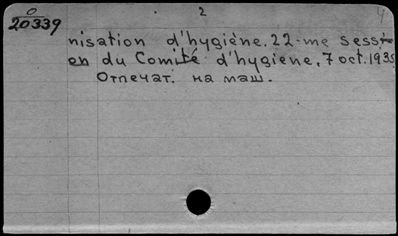 2
4
O
20339
nisation d'hygiène. 22-me sessi-
en du Comité d'hygiene, 7 oct. 1935
Отпечат. на маш.